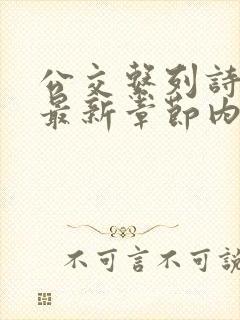 公交繫列詩
最新章節內
不可言不可說